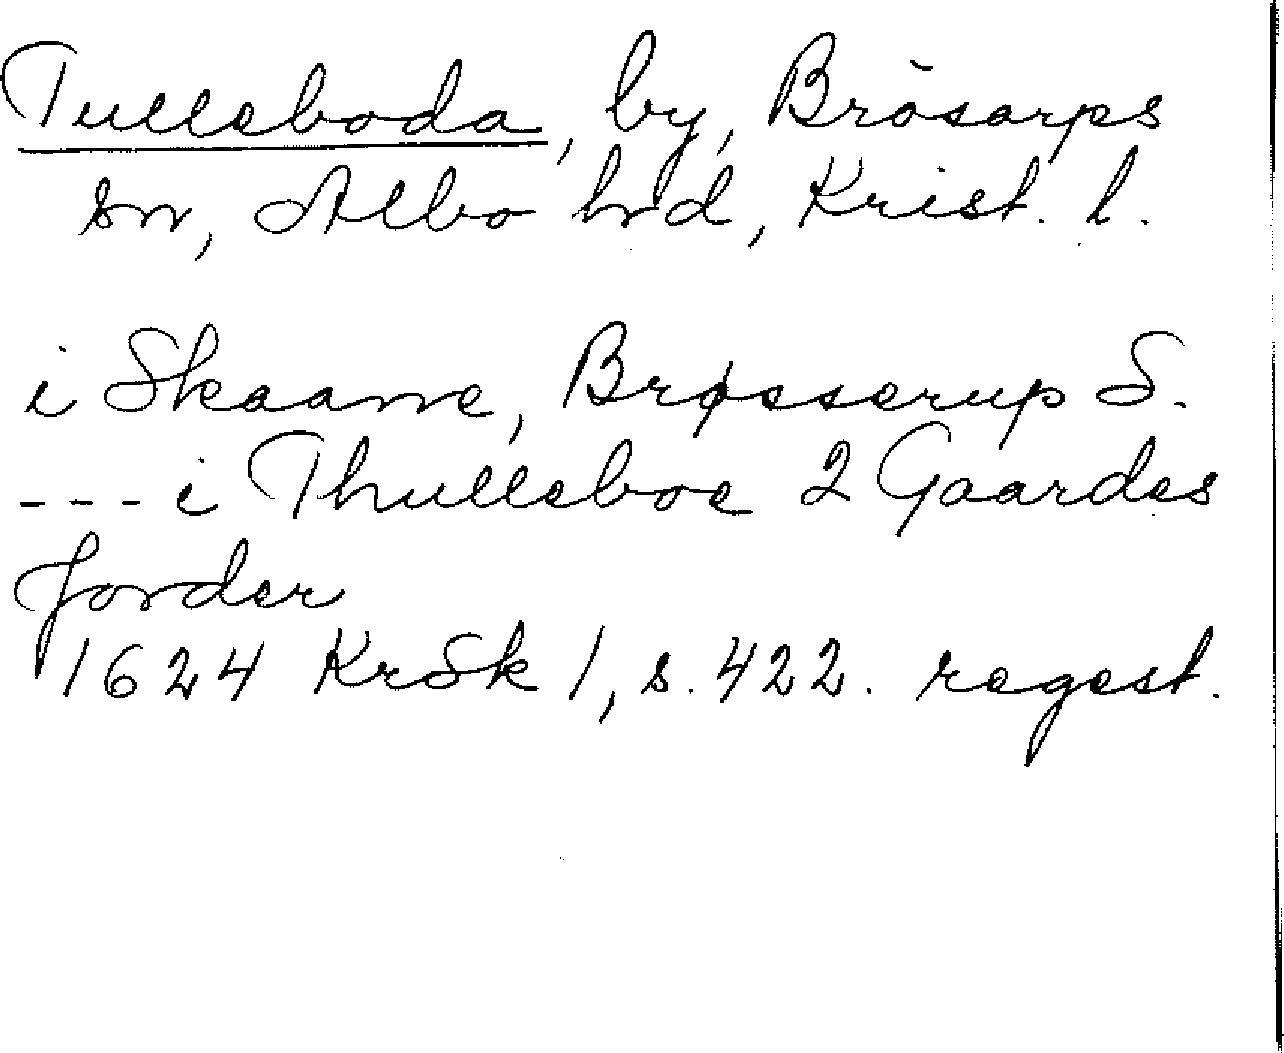 Tulleboda, by, Brösarps
sn, Albo hrd, Krist. l.
i Skaane, Brøsserup S.
--- i Thulleboe 2 Gaardes
Jorder
1624 KrSk 1, s. 422. regest.